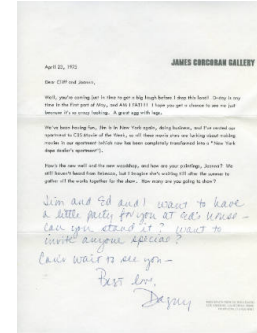 JAMES CORCORAN GALLERY
April 22, 1975
Dear Cliff and Joanne,
Well, you're coming just in time to get a big laugh before I drop this load! D-day is any
time in the first part of May, and AM I FAT!!! I hope you get a chance to see me just
because it's so crazy looking. A great egg with legs.
We've been having fun, Jim is in New York again, doing business, and I've rented our
apartment to CBS Movie of the Week, so all these movie men are lurking about making
movies in our apartment (which now has been completely transformed into a "New York
dope dealer's apartment").
How's the new wall and the new workshop, and how are your paintings, Joanne? We
still haven't heard from but I imagine she's waiting till after the summer to
gather all the works together for the show. How many are you going to show?
Jim and Ed and I want to have
a little party for you at Ed's house -
can you stand it? Want to
invite anyone special?
Can't wait to see you -
Best love,
Dagny